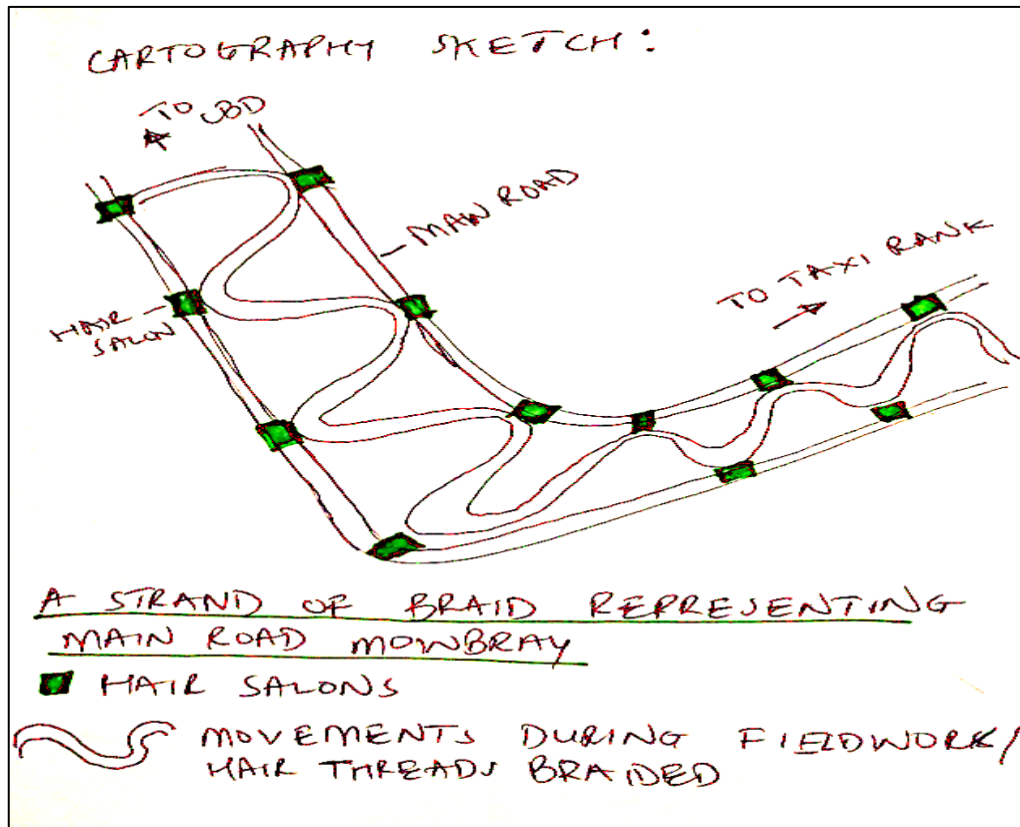 CARTOGRAPHY SKETCH:
TO CBD
MAIN ROAD
TO TAXI RANK
HAIR
SALON
A STRAND OF BRAID REPRESENTING
MAIN ROAD MOWBRAY
HAIR SALONS
MOVEMENTS DURING FIELDWORK/
HAIR THREADS BRAIDED